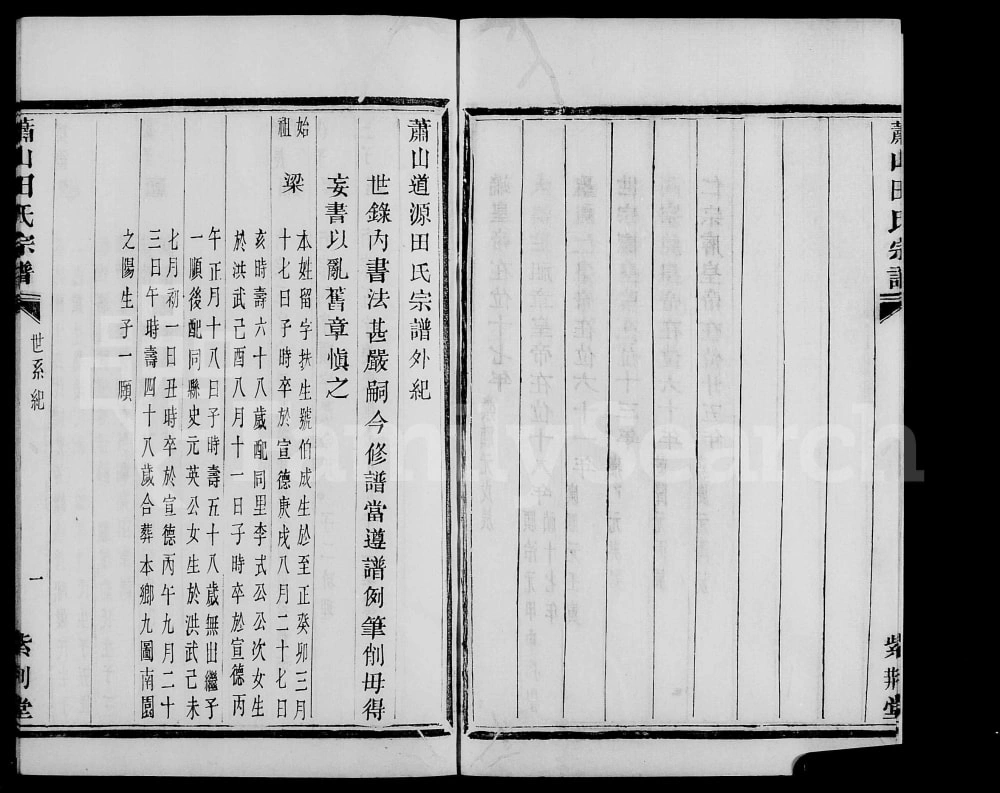 蕭山田氏宗譜
紫荊堂
蕭山道源田氏宗譜外紀
世錄內書法甚嚴嗣今修譜當遵譜例筆削毋得
妄書以亂舊章慎之
始祖
梁
本姓留字扶生號伯成生於至正癸卯三月
十七日子時卒於宣德庚戌八月二十七日
亥時壽六十八歲配同里李式公公次女生
於洪武己酉八月十一日子時卒於宣德丙
午正月十八日子時壽五十八歲無出繼子
一順後配同縣史元英公女生於洪武己未
七月初一日丑時卒於宣德丙午九月二十
三日午時壽四十八歲合葬本鄉九圖南園
之陽生子一願
蕭山田氏宗譜
世系紀
一
紫荊堂
FamilySearch